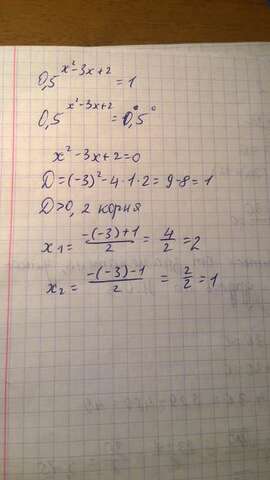 0,5^(x²-3x+2) = 1
0,5^(x²-3x+2) = 0,5^0
x²-3x+2=0
D=(-3)²-4·1·2=9-8=1
D>0, 2 корня
x₁ = (-(-3)+1)/2 = 4/2 = 2
x₂ = (-(-3)-1)/2 = 2/2 = 1